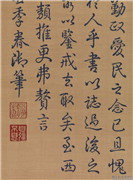 勤政愛民之念已且愧
於人乎書以誌過後之
以鑒戒去取矣至西
類推更弗贅言
季春御筆